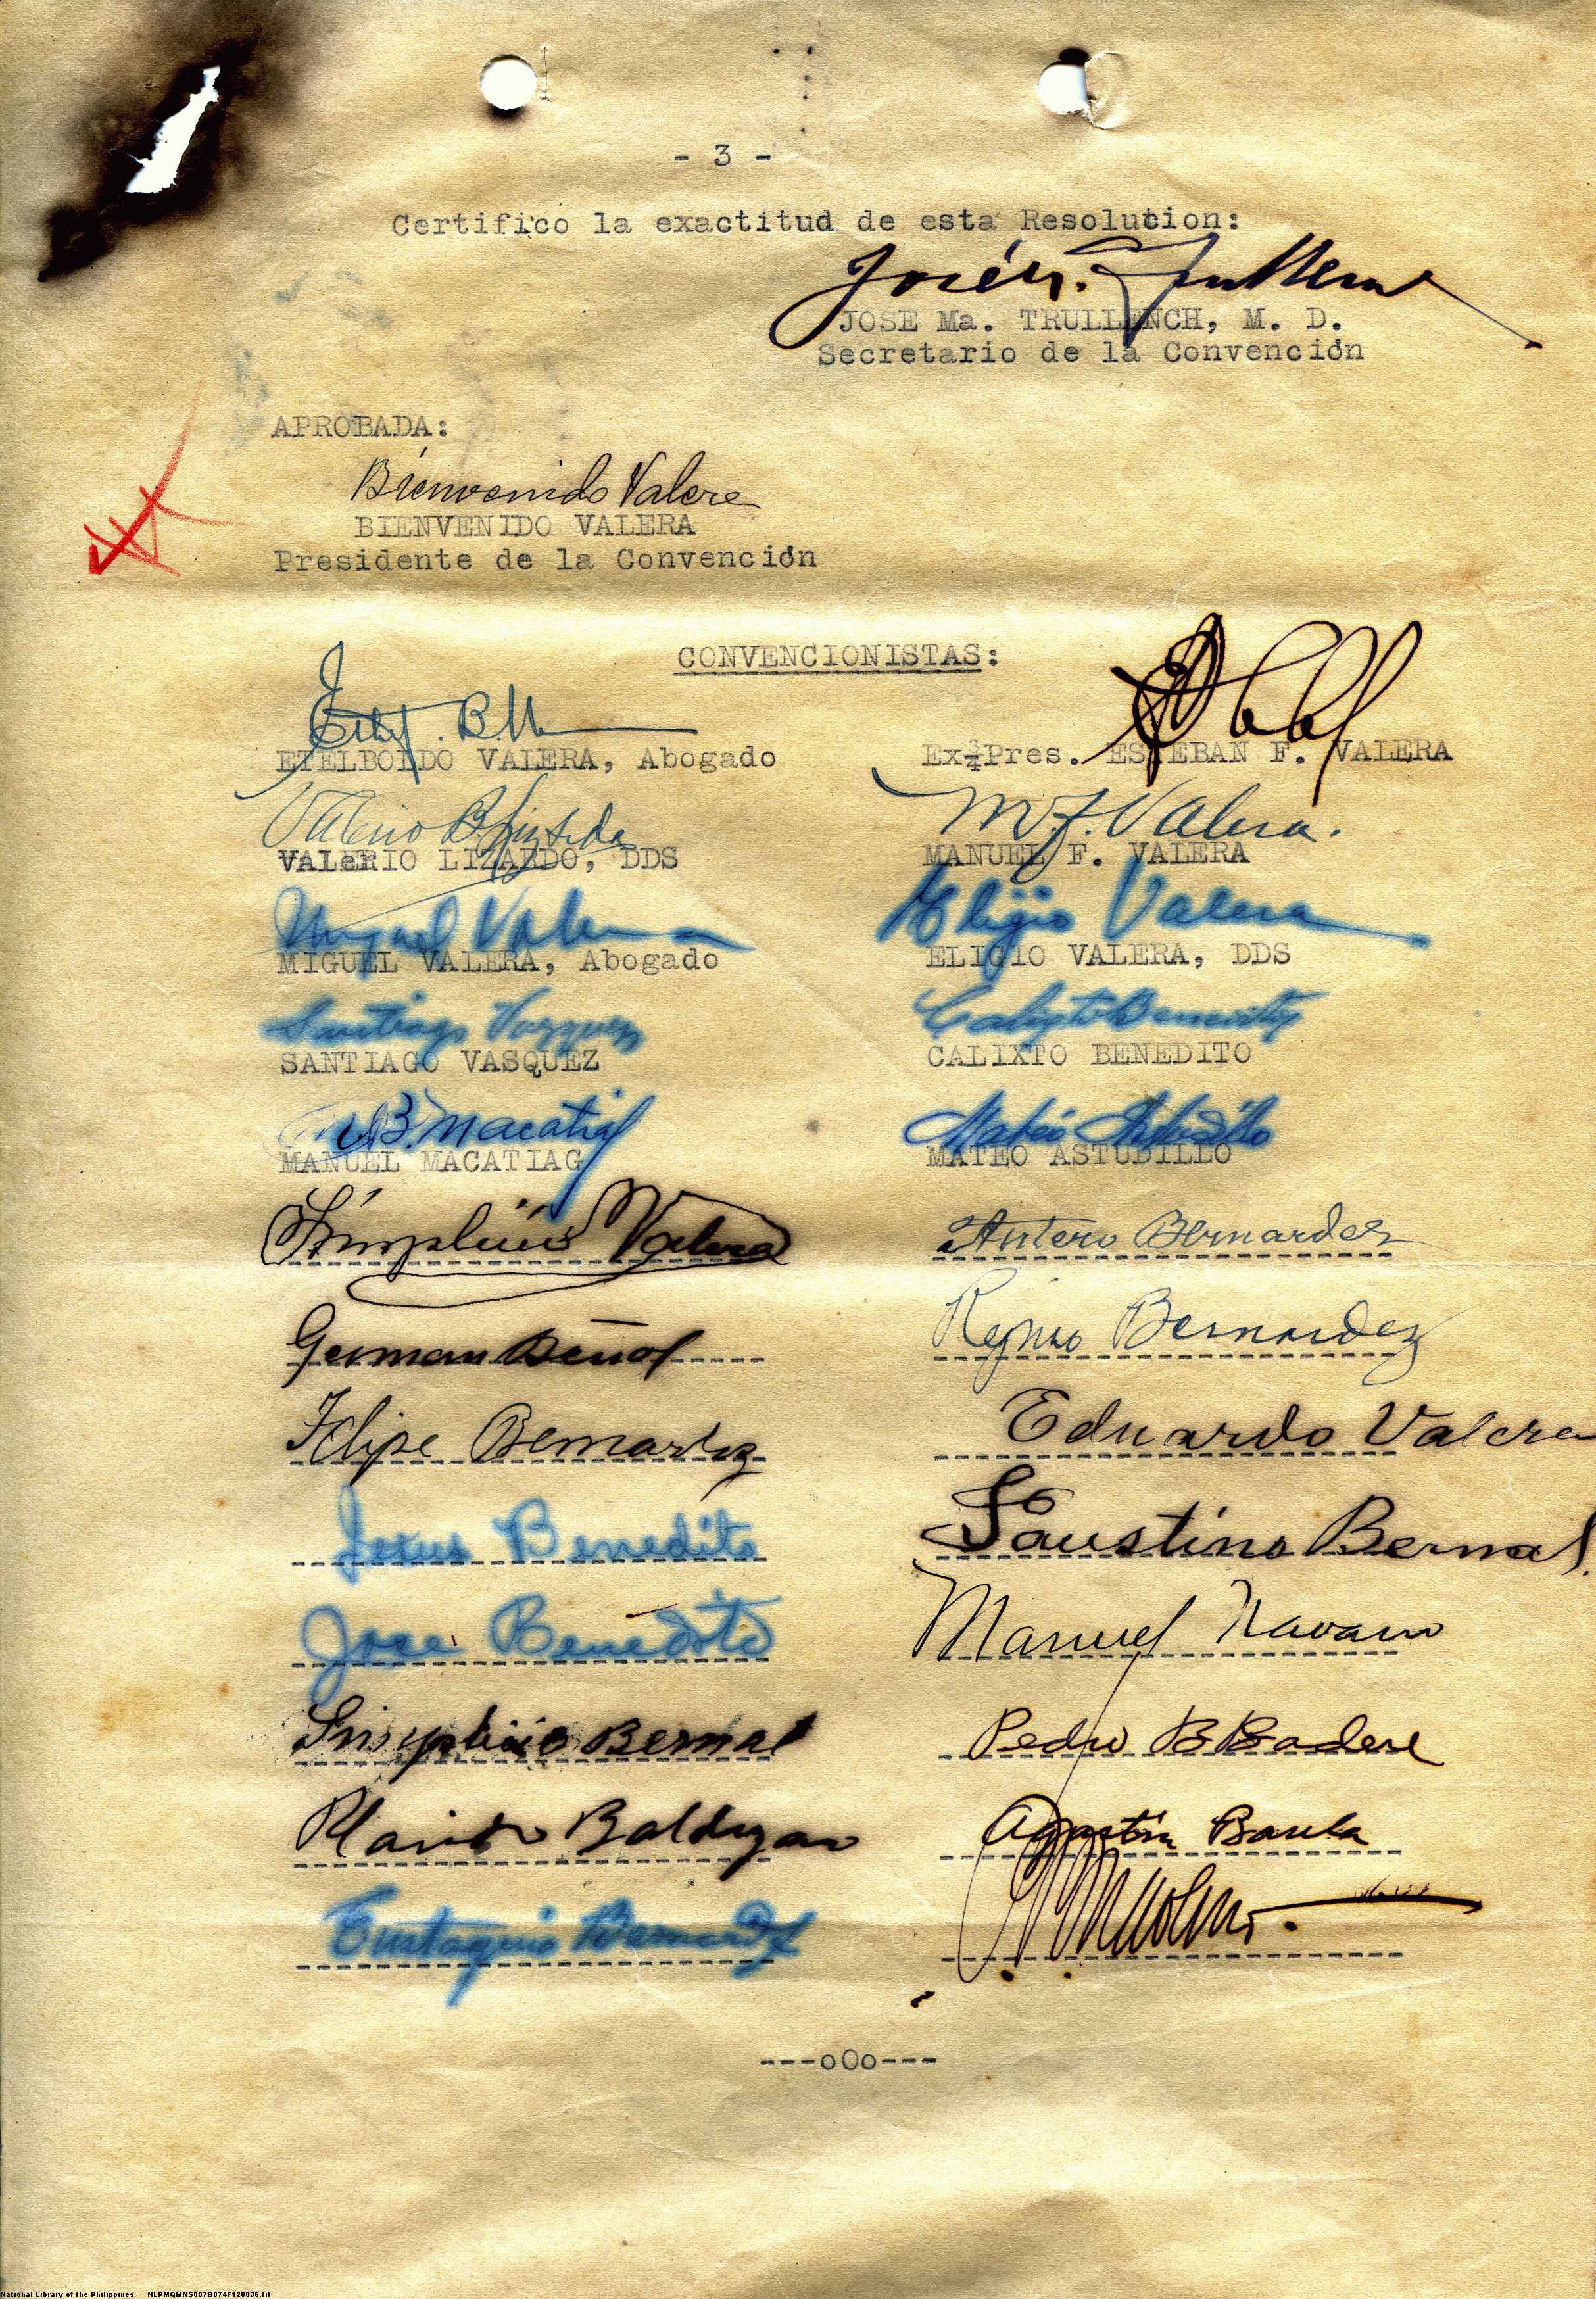 - 3 -
Certifico la exactitud de esta Resolution:
JOSE Ma. TRULLENCH, M. D.
Secretario de la Convención
APROBADA:
Bienvenido Valera
BIENVENIDO VALERA
Presidente de la Convención
CONVENCIONISTAS:
ETELBOLDO VALERA, Abogado
Ex¾Pres. ESTEBAN F. VALERA
M. F. Valera.
VALERIO LIZARDO, DDS
MANUEL F. VALERA
Miguel Valera
Eligio Valera
MIGUEL VALERA, Abogado
ELIGIO VALERA, DDS
Santiago Vazquez
Calixto Benedito
SANTIAGO VASQUEZ
CALIXTO BENEDITO
M B. Macatiag
Mateo Astudillo
MANUEL MACATIAG
MATEO ASTUDILLO
Simplicio Valera
Antero Bernardez
German
Bernardez
Felipe Bernardez
Eduardo Valera
Jesus Benedito
Faustino Bernal.
Jose Benedito
Manuel Navarro
Simplicio Bernal
Pedro B
Agustin
Eustaquio Bernardez
---oOo---
National Library of the Philippines NLPMQMNS007B074F120036.tif